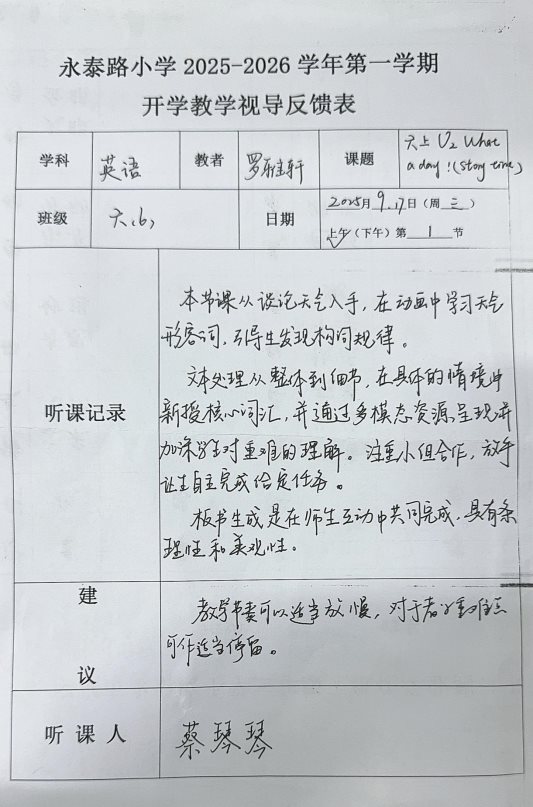 永泰路小学 2025-2026 学年第一学期
开学教学视导反馈表
学科 英语 教者 罗雅轩 课题 六上 U2 What
a day!(story time)
班级 六(6) 日期 2025月9.17日(周三)
上午(下午)第 1 节
听课记录
本节课从谈论天气入手,在动画中学习天气
形容词,引导生发现构词规律。
文本处理从整体到细节,在具体的情境中
新授核心词汇,并通过多模态资源呈现并
加深学生对重难的理解。注重小组合作,放手
让生自主完成给定任务。
板书生成是在师生互动中共同完成,具有条
理性和美观性。
建
议
教学节奏可以适当放慢,对于重难点
可作适当停留。
听课人 蔡琴琴